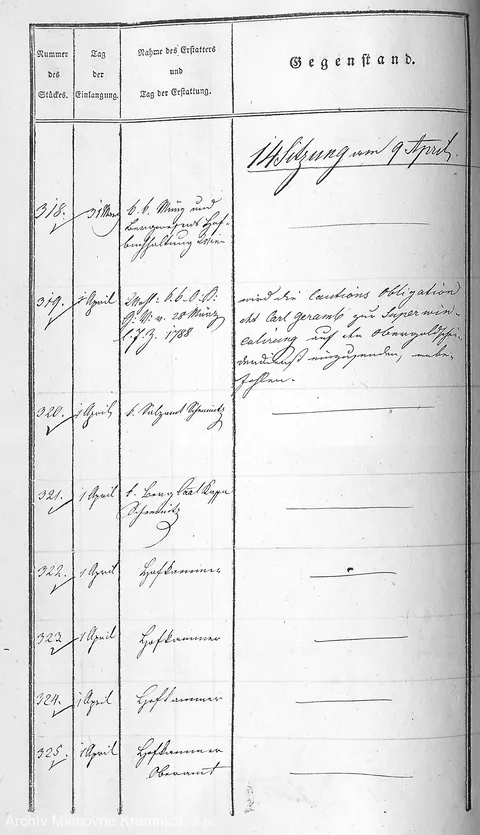 Nummer
des
Stückes.
Tag
der
Einlangung.
Nahme des Erstatters
und
Tag der Erstattung.
Gegenstand.
14 Sitzung am 9 April
318.
31 März
k. k. Münz und
Bergwesens Hof-
buchhaltung Wien
319.
1 April
k. k. O. K.
v. 28 März
l. J. Z. 1788
wird die Cautions Obligation
des Carl Geramb zur Supervin-
culirung auf den Obergoldschei-
derdienst einzusenden, anbe-
fohlen.
320.
1 April
k. Salzamt Schemnitz
321.
1 April
k. Berg Cassa
Schemnitz
322.
1 April
Hofkammer
323
1 April
Hofkammer
324.
1 April
Hofkammer
325.
1 April
Hofkammer
Oberamt
Archív Mincovne Kremnica, š.p.